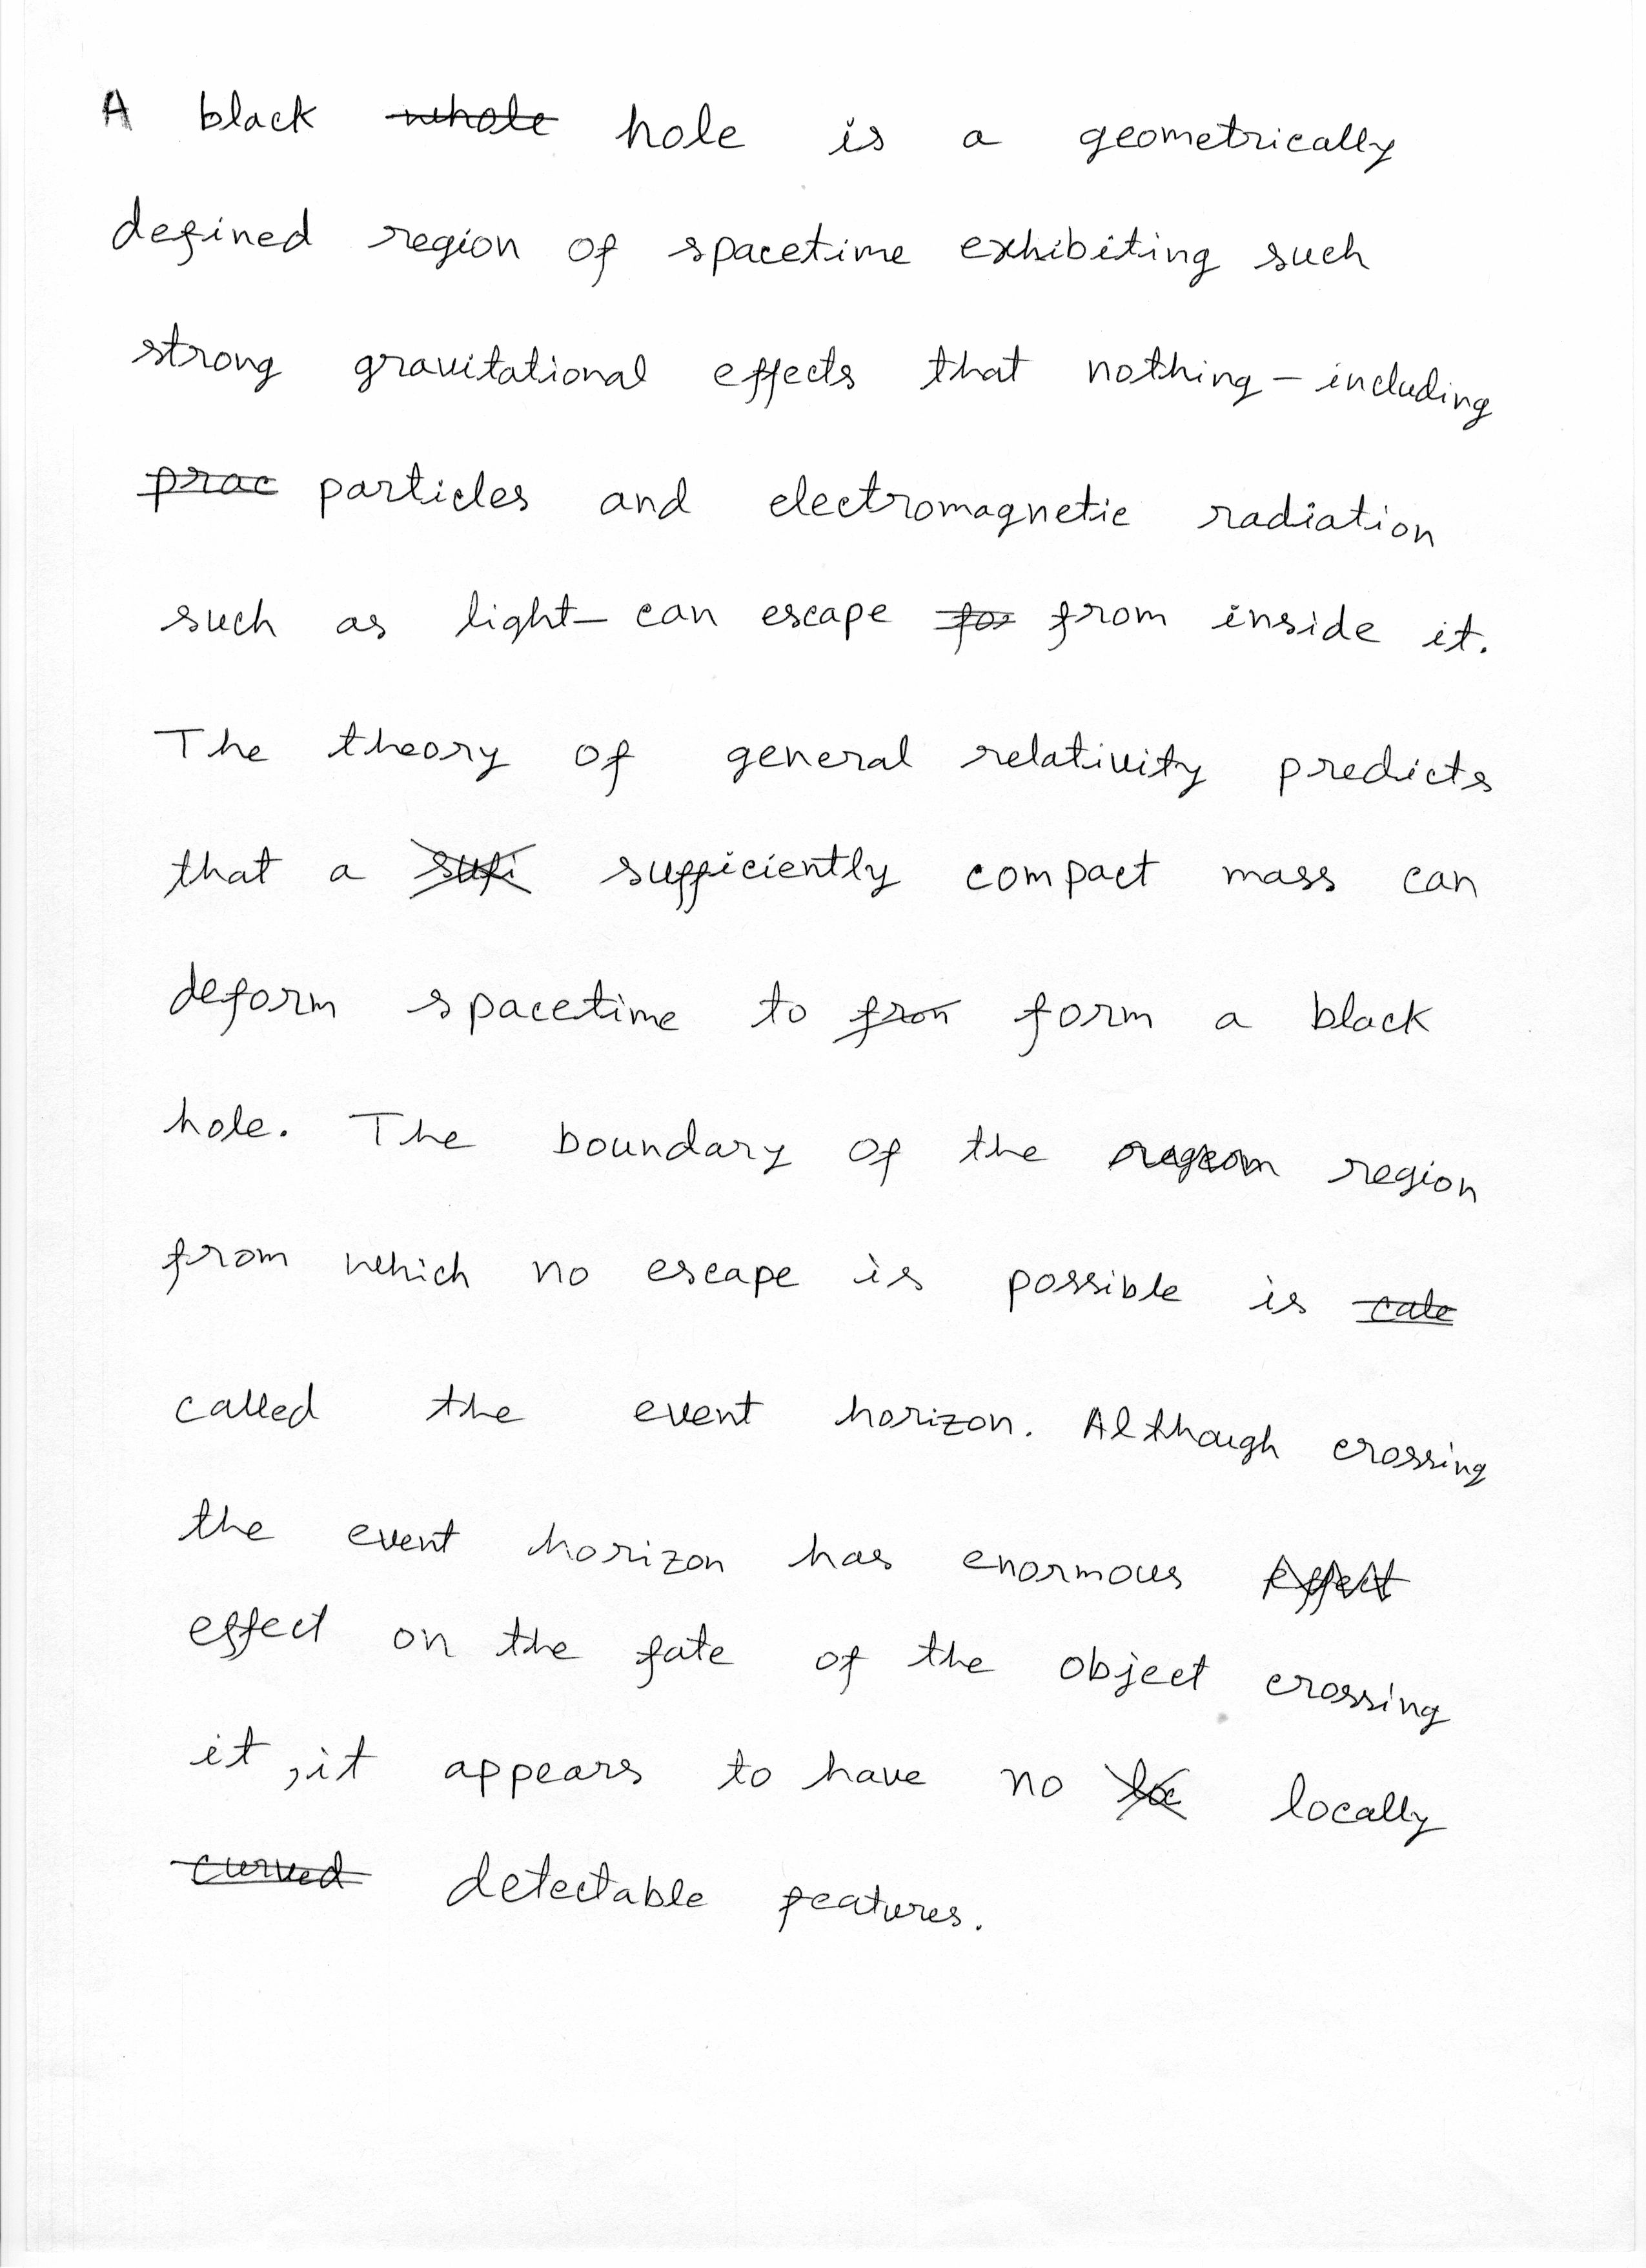 A black whole hole is a geometrically
defined region of spacetime exhibiting such
strong gravitational effects that nothing - including
prac particles and electromagnetic radiation
such as light- can escape for from inside it.
The theory of general relativity predicts
that a sufi sufficiently compact mass can
deform spacetime to fron form a black
hole. The boundary of the region
from which no escape is possible is cale
called the event horizon. Although crossing
the event horizon has enormous Effect
effect on the fate of the object crossing
it, it appears to have no loc locally
curved detectable features.